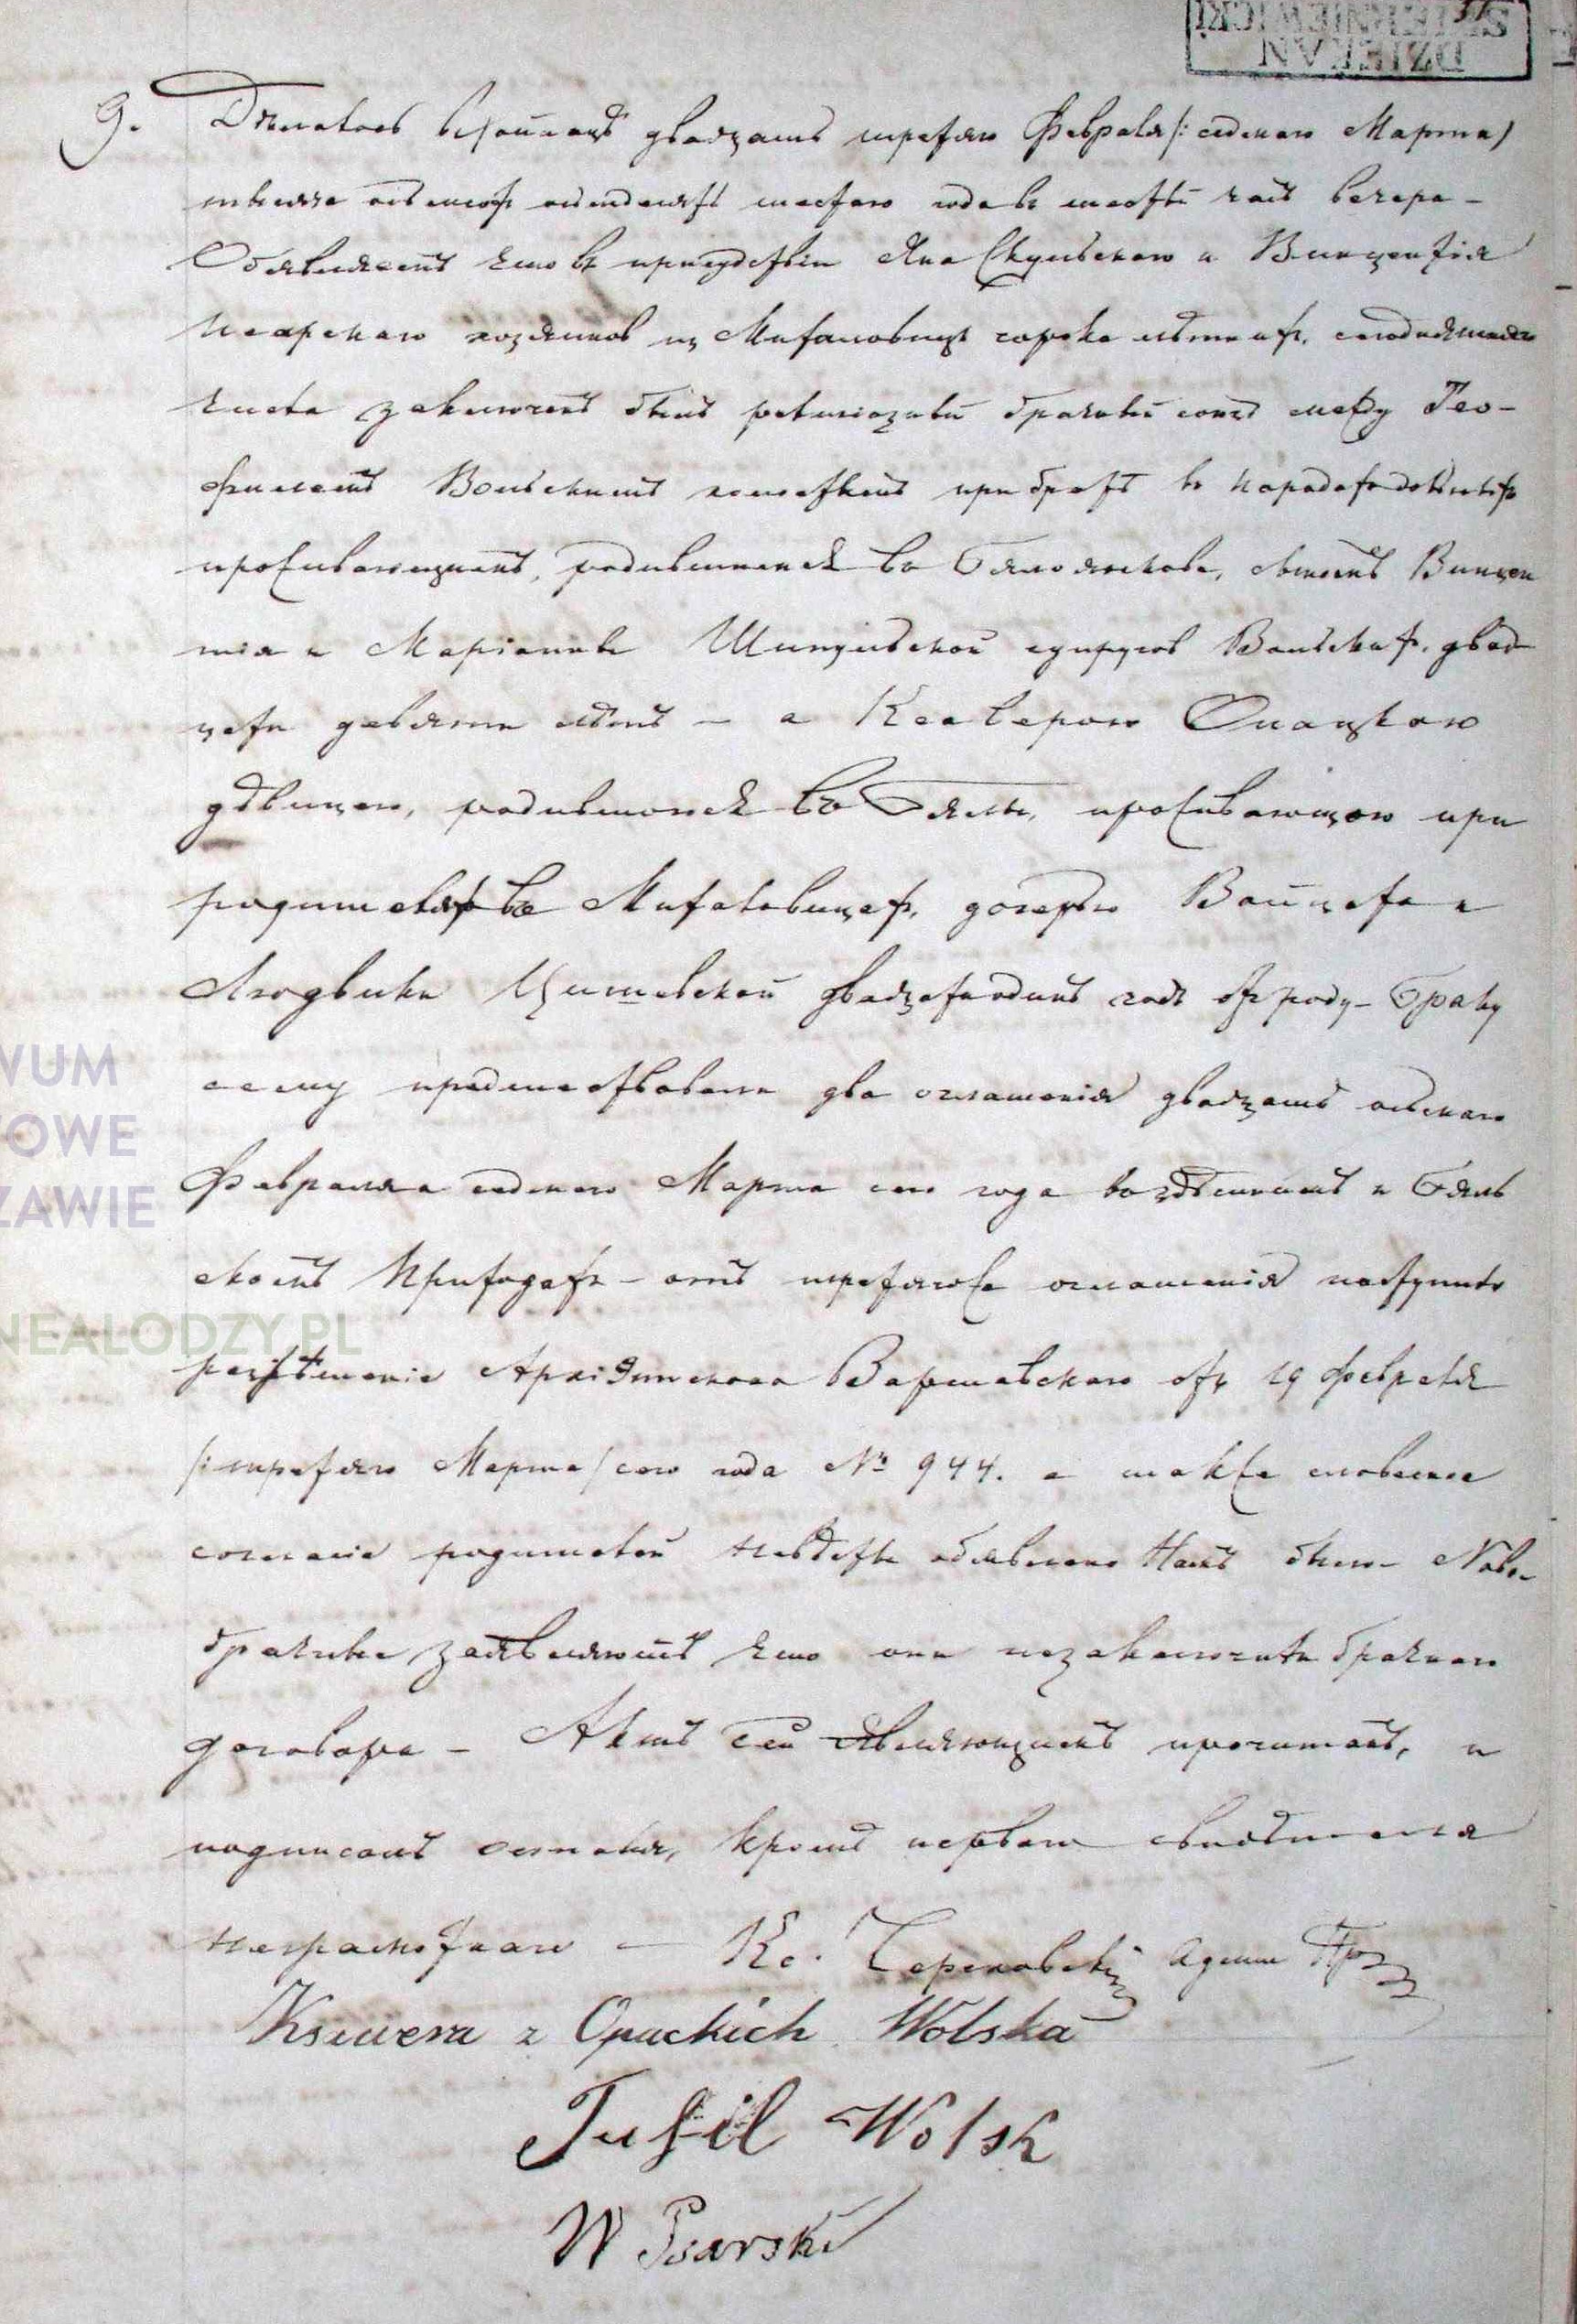 DZIEKAN
SKIERNIEWICKI
9. Деялось двадцать третяго Февраля /: седмаго Марта /
тысяча осьмсотъ осмдесятъ шестаго года въ шесть часъ вечера –
Объявляемъ что въ присудствіи Яна Скульскаго и Винцентія
Псарскаго хозяиновъ изъ Михаловицъ сорока лѣтнихъ, сегодняшняго
числа заключенъ былъ религіозный брачный союзъ между Тео-
филемъ Вольскимъ холостымъ при братѣ въ
проживающимъ, родившимся въ сыномъ Винцен
тія и Маріанны Шипульской супруговъ Вольскихъ, двад
цати девяти лѣтъ – а Ксаверою Опацкою
дѣвицею, родившоюся въ Бялы, проживающою при
родителяхъ въ Михаловицахъ, дочерью Войцеха и
Людвики двадцать одинъ годъ отъ роду – Браку
сему предшествовали два оглашенія двадцать осьмаго
Февраля а седмаго Марта сего года въ здѣшнемъ и Бяль
скомъ Приходахъ – отъ третягоже оглашенія наступило
разрѣшеніе Архіэпископа Варшавскаго отъ 19 февраля
/: третяго Марта / сего года № 944. а также словесное
согласіе родителей невѣсты объявлено Намъ было – Ново-
брачные заявляютъ что они незаключили брачнаго
договора – Актъ сей являющимъ прочитанъ, и
подписанъ остался, кромѣ перваго свидѣтеля
неграмотнаго — Кс. Админ Пр
Ksawera z Opackich Wolska
Tufil Wolsk
W Psarski
WUM
OWE
ZAWIE
NEALODZY.PL